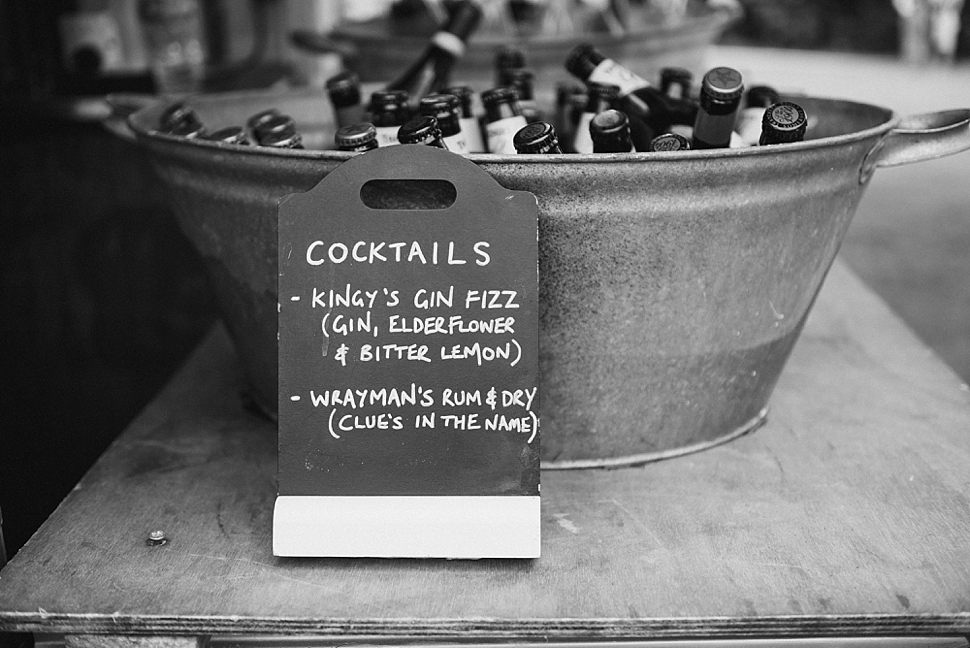 COCKTAILS
- KINGY'S GIN FIZZ
(GIN, ELDERFLOWER
& BITTER LEMON)
- WRAYMAN'S RUM & DRY
(CLUE'S IN THE NAME)